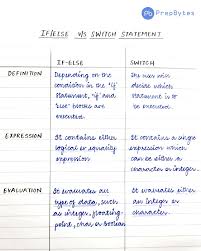 PrepBytes
IF/ELSE V/S SWITCH STATEMENT
IF-ELSE
SWITCH
DEFINITION
Depending on the
condition in the "if"
statement, "if" and
"else" blocks are
executed.
the user will
decide which
statement is to
be executed.
EXPRESSION
It contains either
logical or equality
expression
It contains a single
expression which
can be either a
character or integer.
EVALUATION
It evaluates all
type of data, such
as integer, floating-
point, char or boolean
It evaluates either
an Integer or
character.